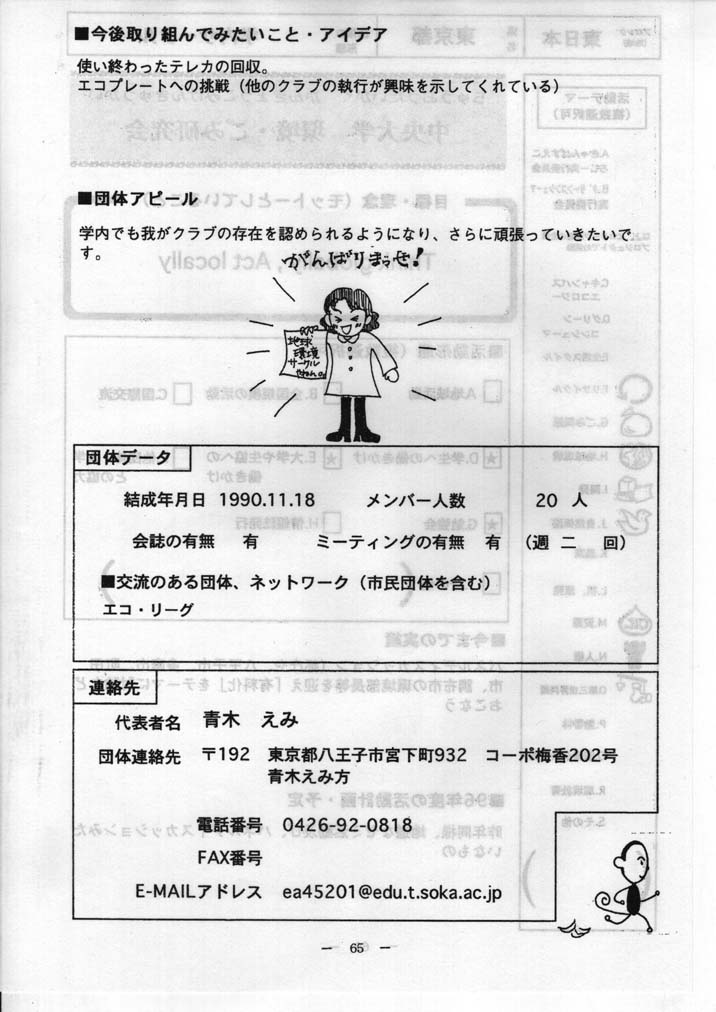 ■今後取り組んでみたいこと・アイデア
使い終わったテレカの回収。
エコプレートへの挑戦（他のクラブの執行が興味を示してくれている）
■団体アピール
学内でも我がクラブの存在を認められるようになり、さらに頑張っていきたいで
す。
がんばりまっせ!
地球
環境
サークル
やねん。
団体データ
結成年月日 1990.11.18 メンバー人数 20 人
会誌の有無 有 ミーティングの有無 有 （週 二 回）
■交流のある団体、ネットワーク（市民団体を含む）
エコ・リーグ
連絡先
代表者名 青木 えみ
団体連絡先 〒192 東京都八王子市宮下町932 コーポ梅香202号
青木えみ方
電話番号 0426-92-0818
FAX番号
E-MAILアドレス ea45201@edu.t.soka.ac.jp
— 65 —